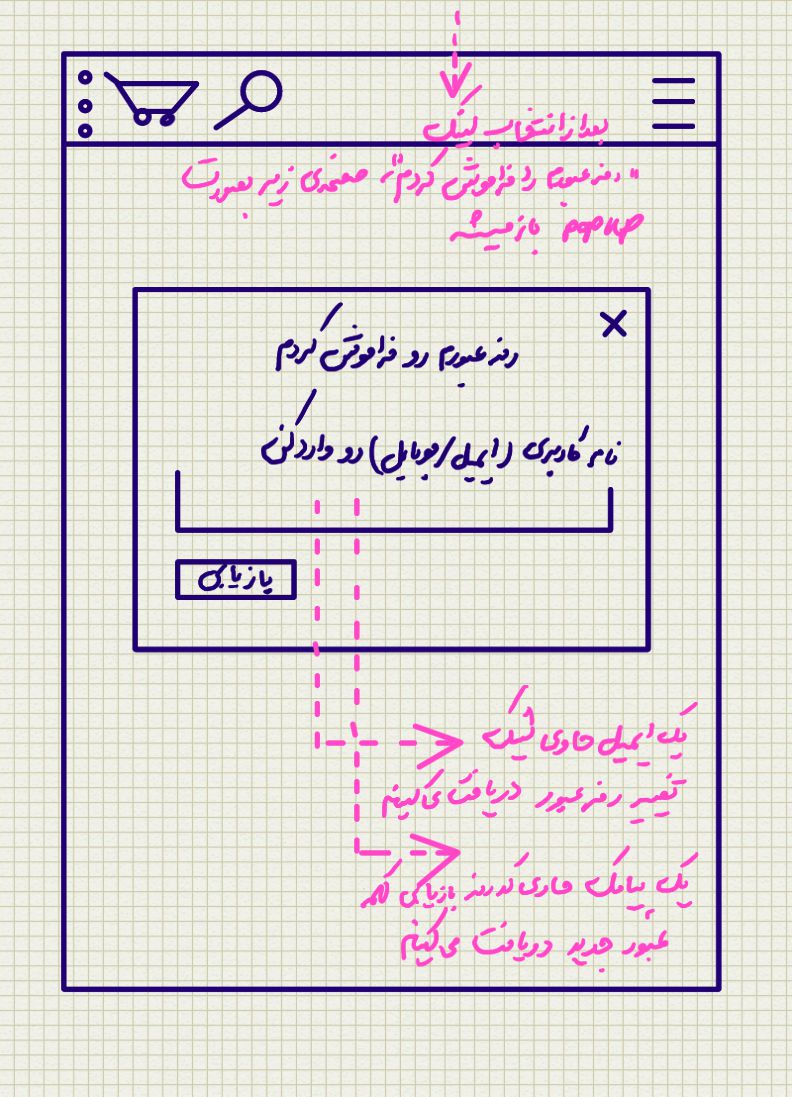 بعد از انتخاب لینک
"رمز عبورم را فراموش کردم" صفحه‌ی زیر بصورت
POPUP باز میشه
رمز عبورم رو فراموش کردم
نام کاربری (ایمیل/موبایل) رو وارد کن
بازیابی
یک ایمیل حاوی لینک
تغییر رمز عبور دریافت می‌کنیم
یک پیامک حاوی کد رمز بازیابی
عبور جدید دریافت می‌کنیم